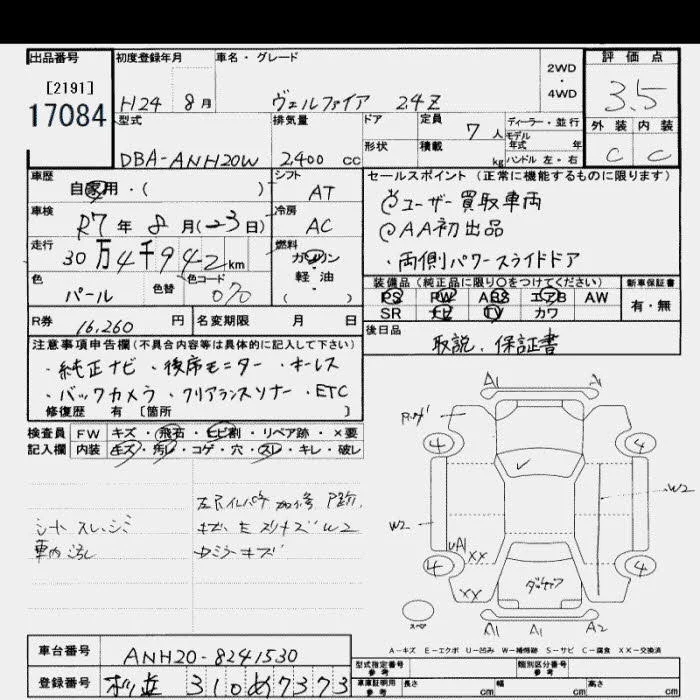 出品番号 初度登録年月 車名・グレード 2WD・4WD 評価点
[2191]
17084 H24 8月 ヴェルファイア 2.4Z 3.5
型式 排気量 ドア 定員 7人 ディーラー・並行 外装 内装
形状 積載 kg モデル年式 年 ハンドル 左・右
DBA-ANH20W 2,400 cc C C
車歴 自家用・( ) シフト AT セールスポイント (正常に機能するものに限ります)
ユーザー買取車両
車検 R7年 8月(23日) 冷房 AC
AA初出品
走行 30万4千942km 燃料 ガソリン・軽油 ( )
・両側パワースライドドア
色 パール 色替 色コード 070
装備品 (純正品に限り○をつけてください) 新車保証書
PS PW ABS エアB AW 有・無
SR ナビ TV カワ
R券 16,260円 名変期限 月 日 後日品
取説、保証書
注意事項申告欄(不具合内容等は具体的に記入して下さい)
・純正ナビ・後席モニター・キーレス
・バックカメラ・クリアランスソナー・ETC
修復歴 有 [箇所 ]
検査員 FW キズ・飛石・ヒビ割・リペア跡・×要
記入欄 内装 キズ・汚れ・コゲ・穴・スレ・キレ・破レ
シートスレ、シミ
車内汚れ
キズ W2
A1 A
4 4
W2 W2
A1 XX
4 4
XX
スペア
A1 A1 A2
A-キズ E-エクボ U-凹み W-補修跡 S-サビ C-腐食 XX-交換済
車台番号 ANH20-8241530
型式指定番号 参考 類別区分番号 参考
登録番号 310 め7373
車庫証明用 参考 長さ cm 幅 cm 高さ cm